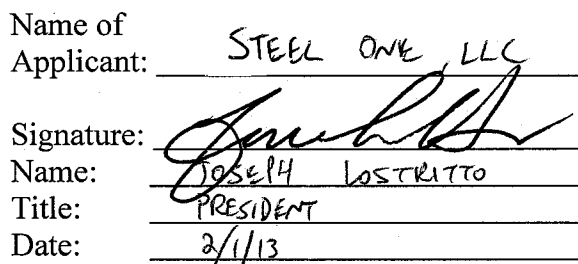 Name of
Applicant: STEEL ONE, LLC
Signature:
Name: JOSEPH LOSTRITTO
Title: PRESIDENT
Date: 2/1/13